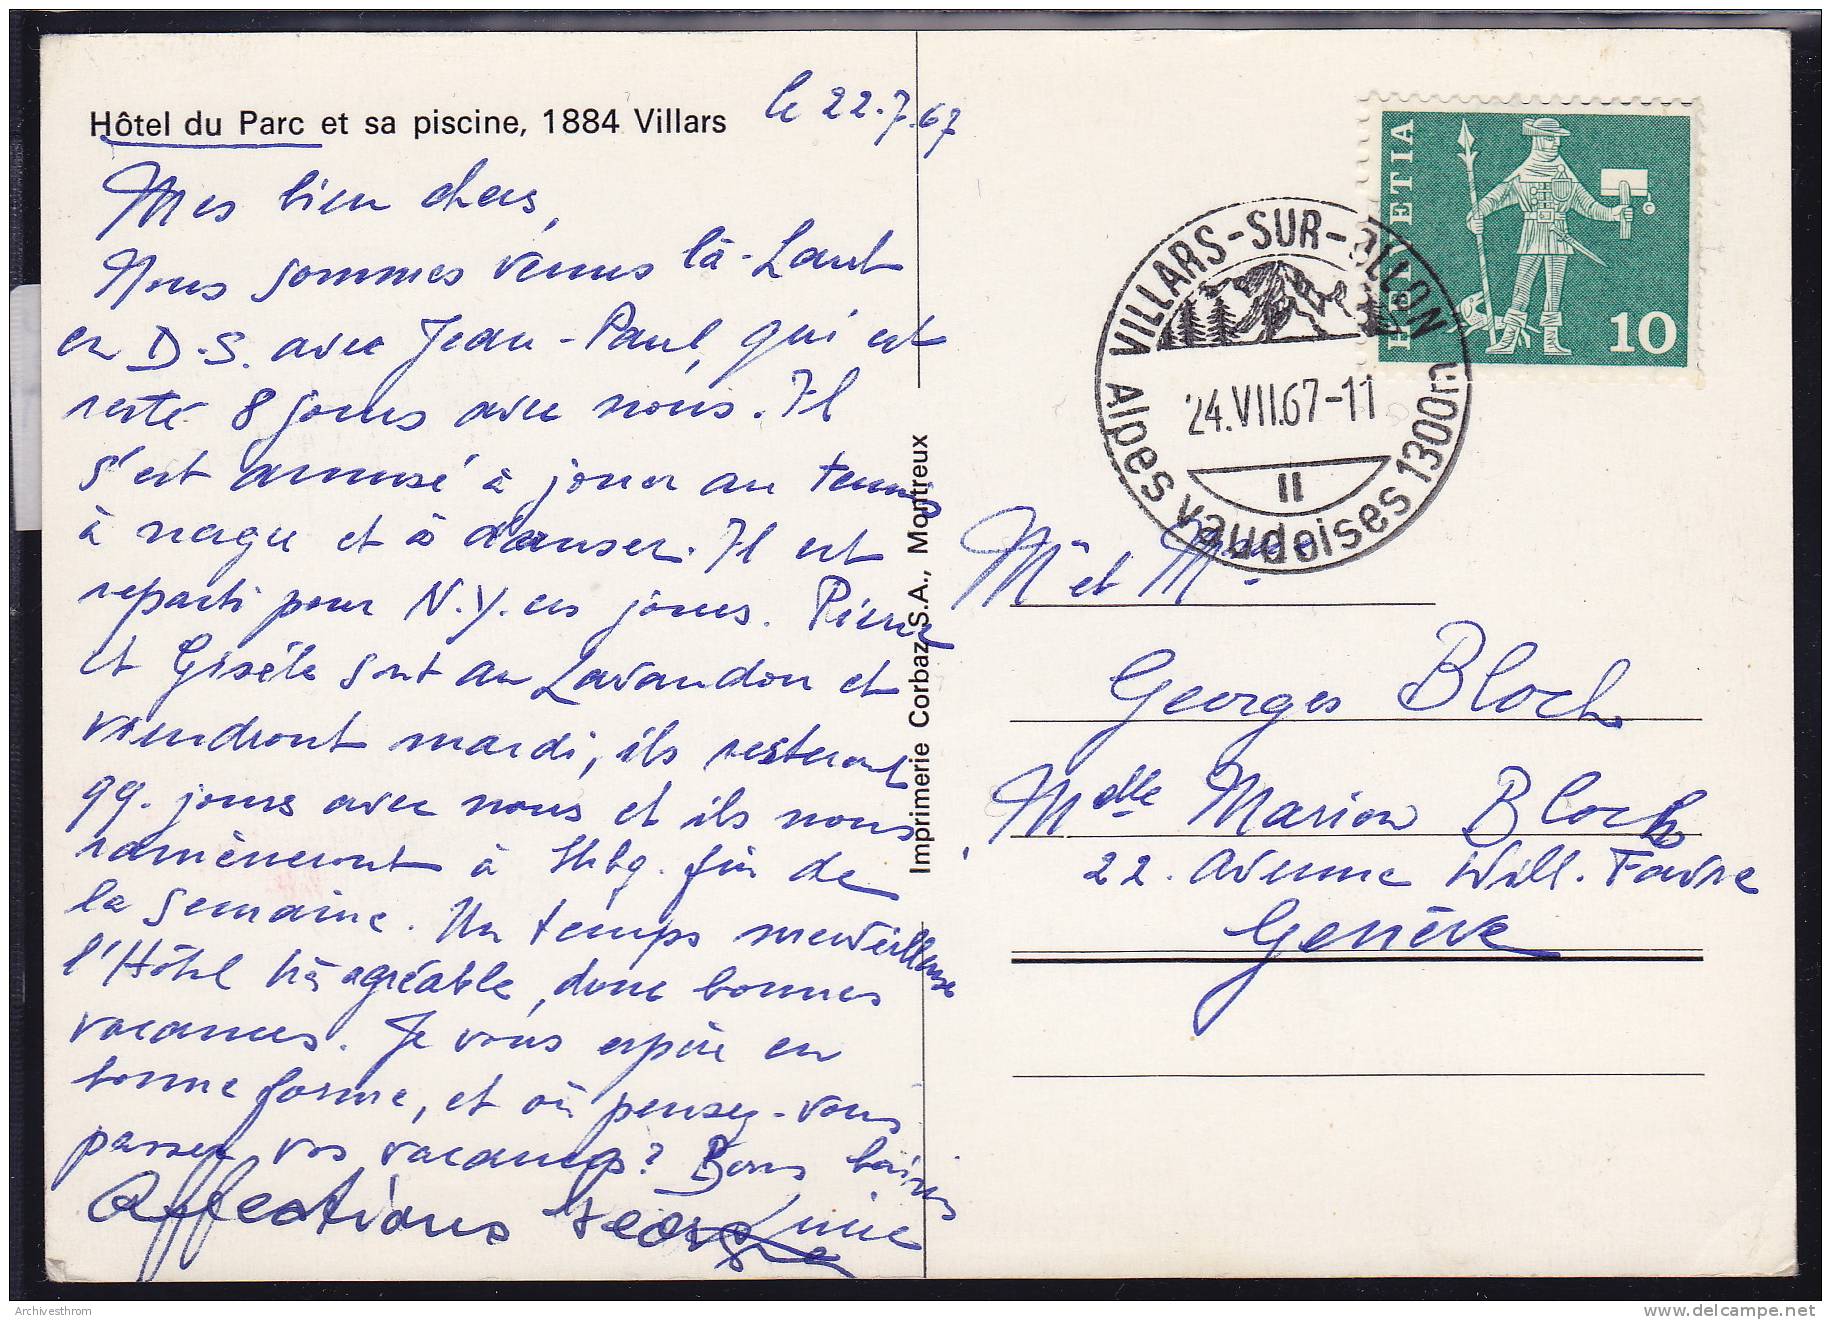 Hôtel du Parc et sa piscine, 1884 Villars
le 22.7.67
Mes bien chers,
Nous sommes venus là-haut
en D.S. avec Jean-Paul, qui est
resté 8 jours avec nous. Il
s'est amusé à jouer au tennis
à nager et à danser. Il est
reparti pour N.Y. ces jours. Pierre
et Gisèle sont au Lavandou et
viendront mardi, ils resteront
qq. jours avec nous et ils nous
ramèneront à Stbg. fin de
la semaine. Un temps merveilleux
l'Hôtel très agréable, donc bonnes
vacances. Je vous espère en
bonne forme, et où pensez-vous
passer vos vacances? Bons baisers
Affections Lucie
Imprimerie Corbaz S.A., Montreux
HELVETIA
10
VILLARS-SUR-OLLON
24.VII.67-11
II
Alpes vaudoises 1300m
Mr et Mme
Georges Bloch
Melle Marion Bloch
22. Avenue Will. Favre
Genève
Archivesthrom
www.delcampe.net